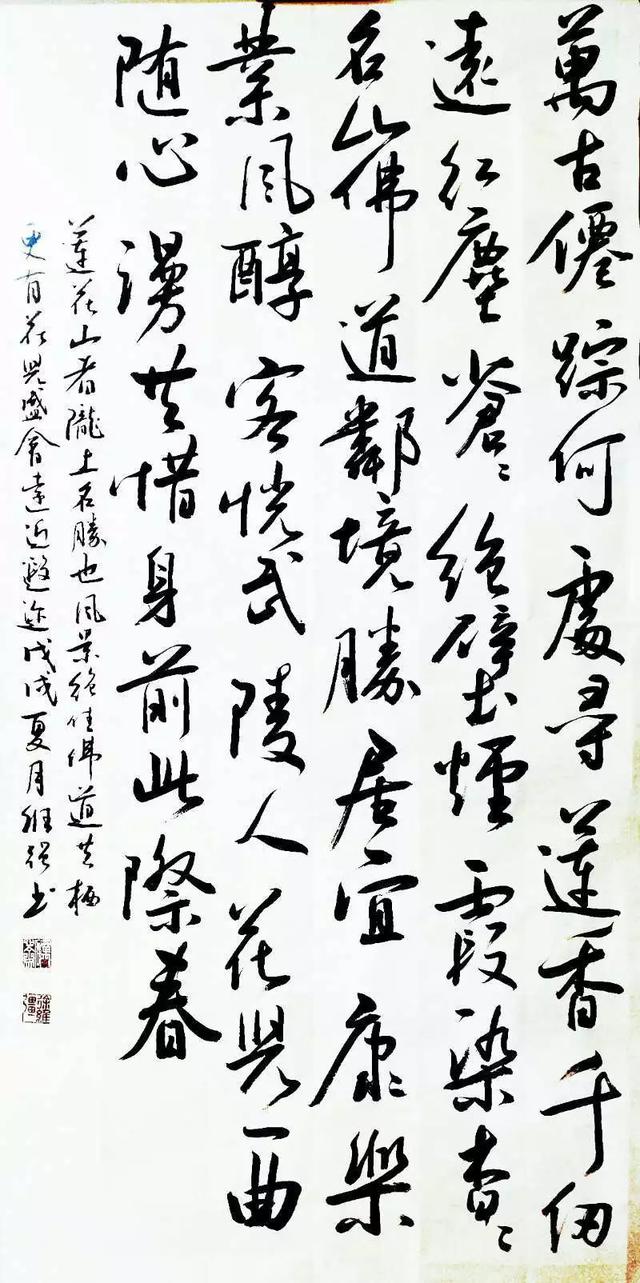 萬古僊踪何處尋蓮香千仞
遠紅塵蒼〻絕壁煙霞染杳〻
名山佛道鄰境勝居宜康樂
業風醇客恍武陵人花兒一曲
随心漫共惜身前此際春
蓮花山者隴上名勝也風景絕佳佛道共栖
更有花兒盛會遠近迩戊戌夏月维书